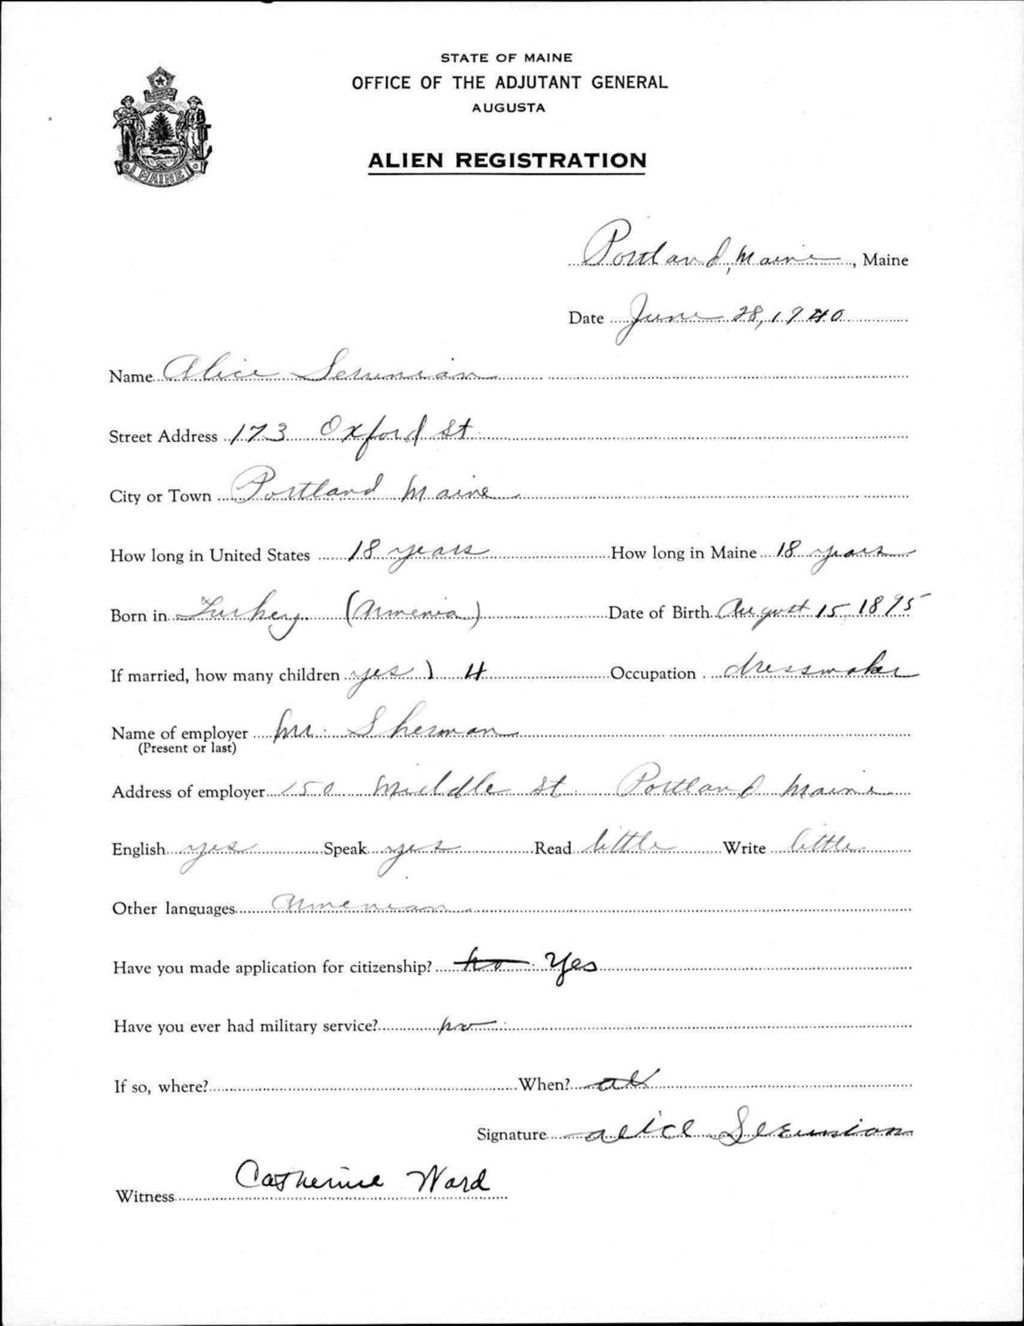 STATE OF MAINE
OFFICE OF THE ADJUTANT GENERAL
AUGUSTA
ALIEN REGISTRATION
MAINE
Portland, Maine, Maine
Date June 28, 1940
Name Alice Serunian
Street Address 173 Oxford St
City or Town Portland Maine
How long in United States 18 years How long in Maine 18 years
Born in Turkey (Armenia) Date of Birth August 15 1895
If married, how many children yes) 4 Occupation dressmaker
Name of employer Mr. Sherman
(Present or last)
Address of employer 150 Middle St. Portland Maine
English yes Speak yes Read little Write little
Other languages Armenian
Have you made application for citizenship? no Yes
Have you ever had military service? no
If so, where? When?
Signature alice Serunian
Witness Catherine Ward